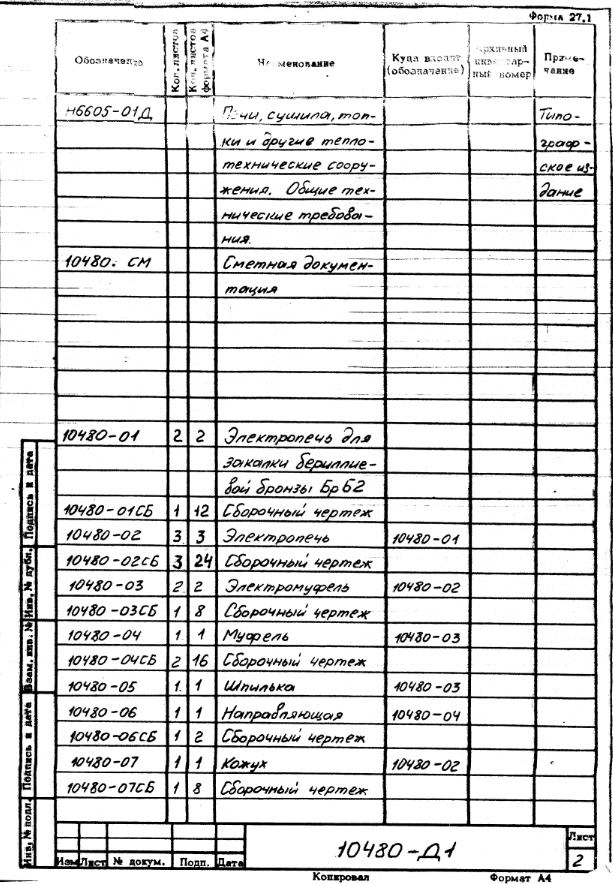 Форма 27.1
Обозначение Кол. листов Кол. листов формата А4 Наименование Куда входит (обозначение) Архивный инвентарный номер Примечание
Н6605-01Д Печи, сушила, топ- Типо-
ки и другие тепло- граф-
технические соору- ское из-
жения. Общие тех- дание
нические требова-
ния.
10480. СМ Сметная докумен-
тация
10480-01 2 2 Электропечь для
закалки бериллие-
вой бронзы БрБ2
10480-01СБ 1 12 Сборочный чертеж
10480-02 3 3 Электропечь 10480-01
10480-02СБ 3 24 Сборочный чертеж
10480-03 2 2 Электромуфель 10480-02
10480-03СБ 1 8 Сборочный чертеж
10480-04 1 1 Муфель 10480-03
10480-04СБ 2 16 Сборочный чертеж
10480-05 1 1 Шпилька 10480-03
10480-06 1 1 Направляющая 10480-04
10480-06СБ 1 2 Сборочный чертеж
10480-07 1 1 Кожух 10480-02
10480-07СБ 1 8 Сборочный чертеж
Инв. № подл. Подпись и дата Взам. инв. № Инв. № дубл. Подпись и дата
10480-Д1
Лист
2
Изм Лист № докум. Подп. Дата
Копировал Формат А4